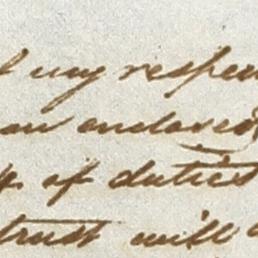 my respec
an enclosed
of duties
trust will